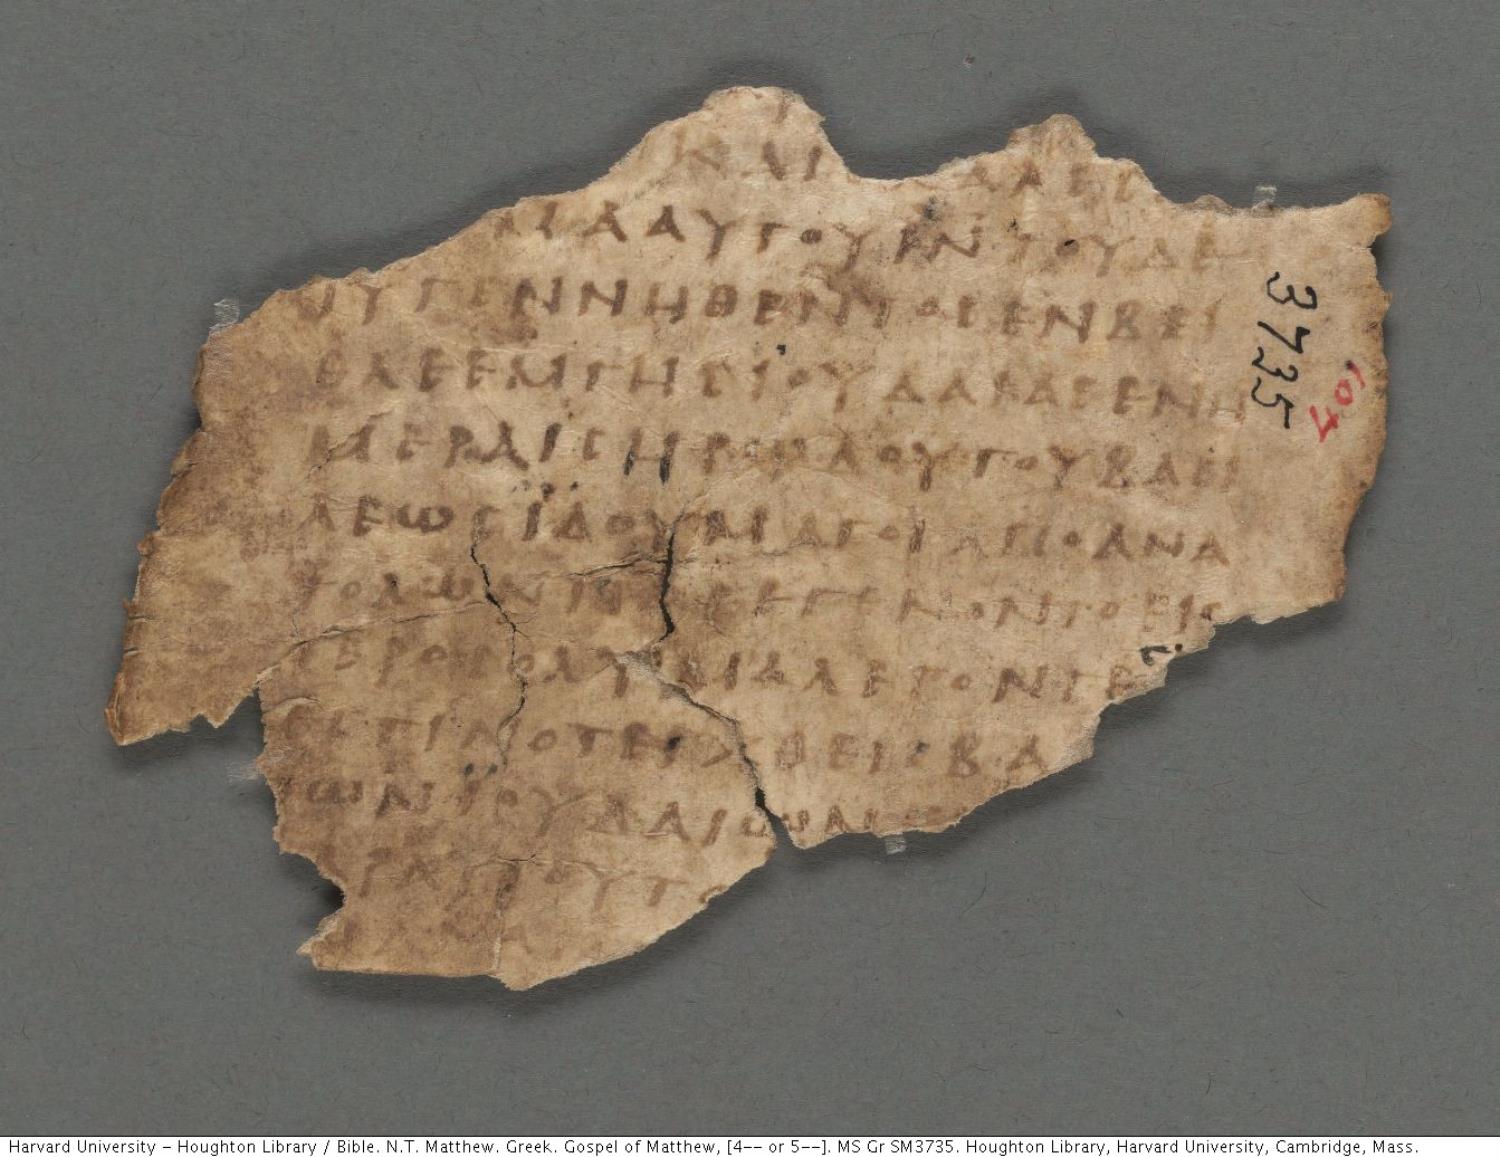 ΝΑΙ ΚΑΛΕϹ
ΜΑΑΥΤΟΥΙΝΤΟΥΔΕ
ΙΥΓΕΝΝΗΘΕΝΤΟϹΕΝΒΕΙ
ΘΛΕΕΜΤΗϹΙΟΥΔΑΕΑϹΕΝΗ
ΜΕΡΑΙϹΗΡΩΔΟΥΤΟΥΒΑϹΙ
ΛΕΩϹΪΔΟΥΜΑΓΟΙΑΠΟΑΝΑ
ΤΟΛΩΝΠΑΡΕΓΕΝΟΝΤΟΕΙϹ
ΙΕΡΟϹΟΛΥΜΑΛΕΓΟΝΤΕ
ΕϹΤΙΝΟΤΕΧΘΕΙϹΒΑ
ΩΝΙΟΥΔΑΙΩ
ΥΤΟ
3735
107
Harvard University – Houghton Library / Bible. N.T. Matthew. Greek. Gospel of Matthew, [4–– or 5––]. MS Gr SM3735. Houghton Library, Harvard University, Cambridge, Mass.